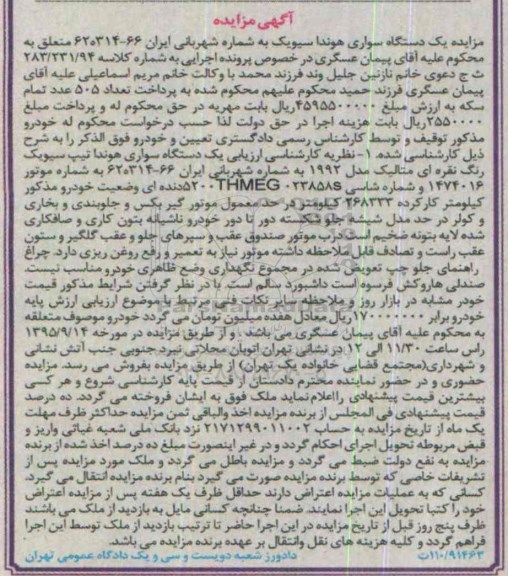 آگهی مزایده
مزایده یک دستگاه سواری هوندا سیویک به شماره شهربانی ایران ۶۶-۳۱۴ه۶۲ متعلق به
محکوم علیه آقای پیمان عسگری در خصوص پرونده اجرایی به شماره کلاسه ۲۸۳/۲۳۱/۹۴
ث ج دعوی خانم نازنین جلیل وند فرزند محمد با وکالت خانم مریم اسماعیلی علیه آقای
پیمان عسگری فرزند حمید محکوم علیهم محکوم شده به پرداخت تعداد ۵۰۵ عدد تمام
سکه به ارزش مبلغ ۴۵۹۵۵۰۰۰۰۰ ریال بابت مهریه در حق محکوم له و پرداخت مبلغ
۲۵۵۰۰۰۰ ریال بابت هزینه اجرا در حق دولت لذا حسب درخواست محکوم له خودرو
مذکور توقیف و توسط کارشناس رسمی دادگستری تعیین و خودرو فوق الذکر را به شرح
ذیل کارشناسی شده. ۱-نظریه کارشناسی ارزیابی یک دستگاه سواری هوندا تیپ سیویک
رنگ نقره ای متالیک مدل ۱۹۹۲ به شماره شهربانی ایران ۶۶-۳۱۴ه۶۲ به شماره موتور
۱۴۷۴۰۱۶ و شماره شاسی ۵۲۰۰THMEG۰۲۳۸۵۸S دنده ای وضعیت خودرو مذکور
کیلومتر کارکرده ۲۶۸۳۳۳ کیلومتر در حد معمول موتور گیر بکس و جلوبندی و بخاری
و کولر در حد مدل شیشه جلو شکسته دور تا دور خودرو ناشیانه بتون کاری و صافکاری
شده لایه بتونه ضخیم است درب موتور صندوق عقب و سپرهای جلو و عقب گلگیر و ستون
عقب راست و تصادف قابل ملاحظه داشته موتور نیاز به تعمیر و رفع روغن ریزی دارد. چراغ
راهنمای جلو چپ تعویض شده در مجموع نگهداری وضع ظاهری خودرو مناسب نیست.
صندلی هاروکش فرسود است داشبورد سالم است. با در نظر گرفتن شرایط مذکور قیمت
خودر مشابه در بازار روز و ملاحظه سایر نکات فنی مرتبط با موضوع ارزیابی ارزش پایه
خودرو برابر ۱۷۰۰۰۰۰۰۰ ریال معادل هفده میلیون تومان می گردد خودرو موصوف متعلقه
به محکوم علیه آقای پیمان عسگری می باشد. و از طریق مزایده در مورخه ۱۳۹۵/۹/۱۴
راس ساعت ۱۱/۳۰ الی ۱۲ در نشانی تهران اتوبان محلاتی نبرد جنوبی جنب آتش نشانی
و شهرداری(مجتمع قضایی خانواده یک تهران) از طریق مزایده بفروش می رسد. مزایده
حضوری و در حضور نماینده محترم دادستان از قیمت پایه کارشناسی شروع و هر کسی
بیشترین قیمت پیشنهادی را اعلام نماید ملک فوق به ایشان فروخته می گردد. ده درصد
قیمت پیشنهادی فی المجلس از برنده مزایده اخذ والباقی ثمن مزایده حداکثر ظرف مهلت
یک ماه از تاریخ مزایده به حساب ۲۱۷۱۲۹۹۰۱۱۰۰۲ نزد بانک ملی شعبه غیاثی واریز و
قبض مربوطه تحویل اجرای احکام گردد و در غیر اینصورت مبلغ ده درصد اخذ شده از برنده
مزایده به نفع دولت ضبط می گردد و مزایده باطل می گردد و ملک مورد مزایده پس از
تشریفات خاصی که توسط برنده مزایده صورت می گیرد بنام برنده مزایده انتقال می گیرد.
کسانی که به عملیات مزایده اعتراض دارند حداقل ظرف یک هفته پس از مزایده اعتراض
خود را کتبا تحویل این اجرا نمایند. ضمنا چنانچه کسانی مایل به بازدید از ملک می باشند
ظرف پنج روز قبل از تاریخ مزایده در این اجرا حاضر تا ترتیب بازدید از ملک توسط این اجرا
فراهم گردد و کلیه هزینه های نقل وانتقال بر عهده برنده مزایده می باشد.
۱۱۰/۹۱۴۶۳ت دادورز شعبه دویست و سی و یک دادگاه عمومی تهران